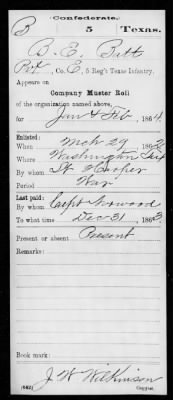 Confederate.
B 5 Texas.
B. E. Bitt
Pvt, Co. E, 5 Reg't Texas Infantry.
Appears on
Company Muster Roll
of the organization named above,
for Jan & Feb, 1864.
Enlisted:
When Mch 29, 1862
Where Washington
By whom Hooper
Period War
Last paid:
By whom Capt
To what time Dec 31, 1863.
Present or absent Present
Remarks:
Book mark:
J W Wilkinson
(642) Copyist.